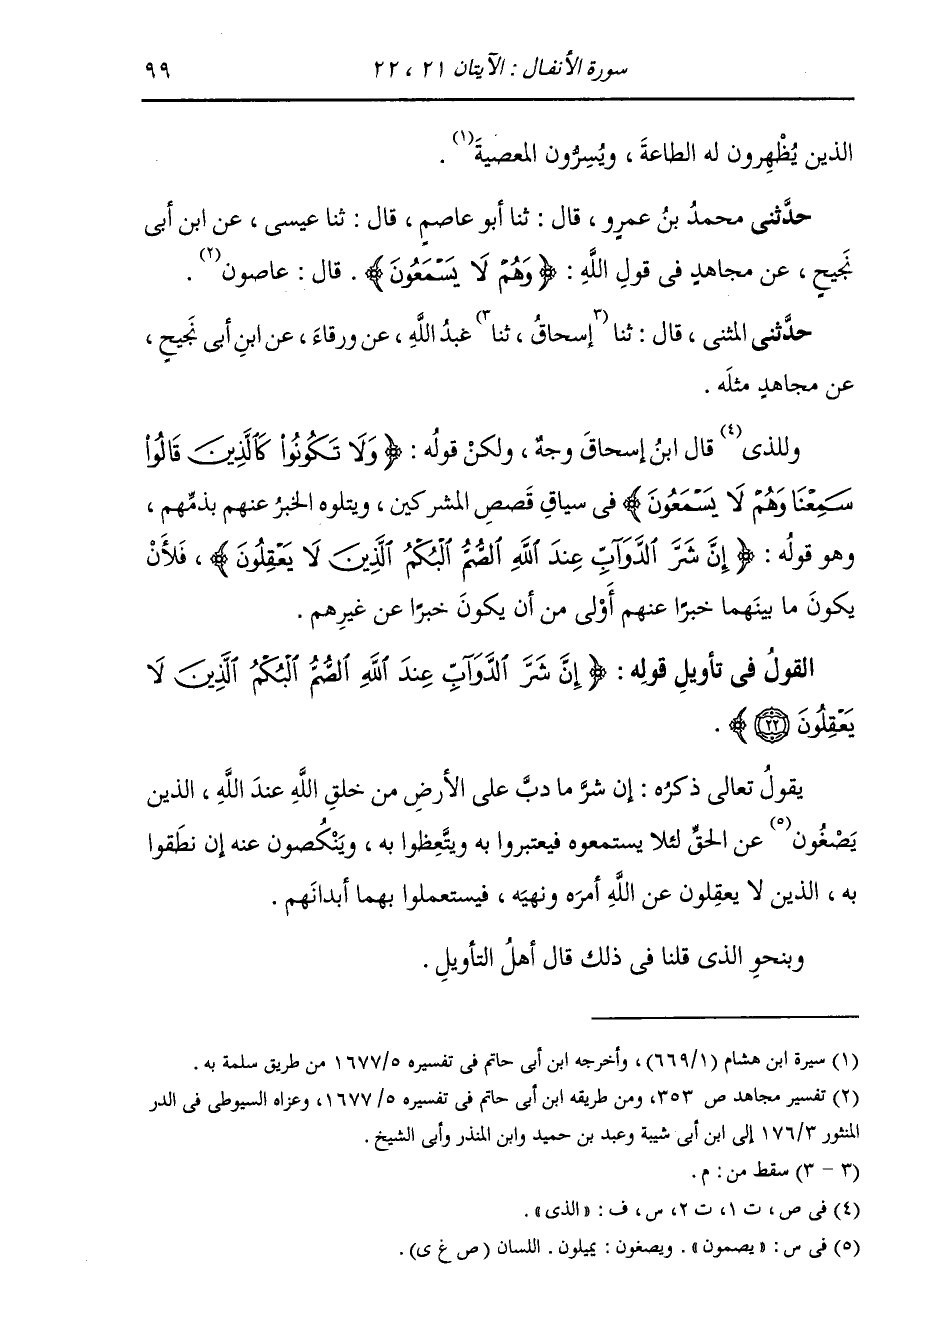 سورة الأنفال : الآيتان ٢١ ، ٢٢ ٩٩
الذين يُظْهِرون له الطاعةَ ، ويُسِرُّون المعصيةَ(١) .
حدَّثنى محمدُ بنُ عمرٍو ، قال : ثنا أبو عاصمٍ ، قال : ثنا عيسى ، عن ابن أبى
نَجيحٍ ، عن مجاهدٍ فى قولِ اللَّهِ : ﴿ وَهُمْ لَا يَسْمَعُونَ ﴾ . قال : عاصون(٢) .
حدَّثنى المثنى ، قال : ثنا (٣إسحاقُ ، ثنا٣) عبدُ اللَّهِ ، عن ورقاءَ ، عن ابنِ أبى نَجيحٍ ،
عن مجاهدٍ مثلَه .
وللذى(٤) قال ابنُ إسحاقَ وجهٌ ، ولكنْ قولُه : ﴿ وَلَا تَكُونُوا۟ كَٱلَّذِينَ قَالُوا۟
سَمِعْنَا وَهُمْ لَا يَسْمَعُونَ ﴾ فى سياقِ قَصصِ المشركين ، ويتلوه الخبرُ عنهم بذمِّهم ،
وهو قولُه : ﴿ إِنَّ شَرَّ ٱلدَّوَآبِّ عِندَ ٱللَّهِ ٱلصُّمُّ ٱلْبُكْمُ ٱلَّذِينَ لَا يَعْقِلُونَ ﴾ ، فَلأَنْ
يكونَ ما بينَهما خبرًا عنهم أَوْلى من أن يكونَ خبرًا عن غيرِهم .
القولُ فى تأويلِ قولِه : ﴿ إِنَّ شَرَّ ٱلدَّوَآبِّ عِندَ ٱللَّهِ ٱلصُّمُّ ٱلْبُكْمُ ٱلَّذِينَ لَا
يَعْقِلُونَ ٢٢ ﴾ .
يقولُ تعالى ذكرُه : إن شرَّ ما دبَّ على الأرضِ من خلقِ اللَّهِ عندَ اللَّهِ ، الذين
يَصْغُون(٥) عن الحقِّ لئلا يستمعوه فيعتبروا به ويتَّعِظوا به ، ويَنْكُصون عنه إن نطَقوا
به ، الذين لا يعقِلون عن اللَّهِ أمرَه ونهيَه ، فيستعملوا بهما أبدانَهم .
وبنحوِ الذى قلنا فى ذلك قال أهلُ التأويلِ .
(١) سيرة ابن هشام (٦٦٩/١) ، وأخرجه ابن أبى حاتم فى تفسيره ١٦٧٧/٥ من طريق سلمة به .
(٢) تفسير مجاهد ص ٣٥٣، ومن طريقه ابن أبى حاتم فى تفسيره ١٦٧٧/٥، وعزاه السيوطى فى الدر
المنثور ١٧٦/٣ إلى ابن أبى شيبة وعبد بن حميد وابن المنذر وأبى الشيخ .
(٣ - ٣) سقط من : م .
(٤) فى ص ، ت ١، ت ٢، س ، ف : «الذى» .
(٥) فى س : «يصمون» . ويصغون : يميلون . اللسان (ص غ ى) .